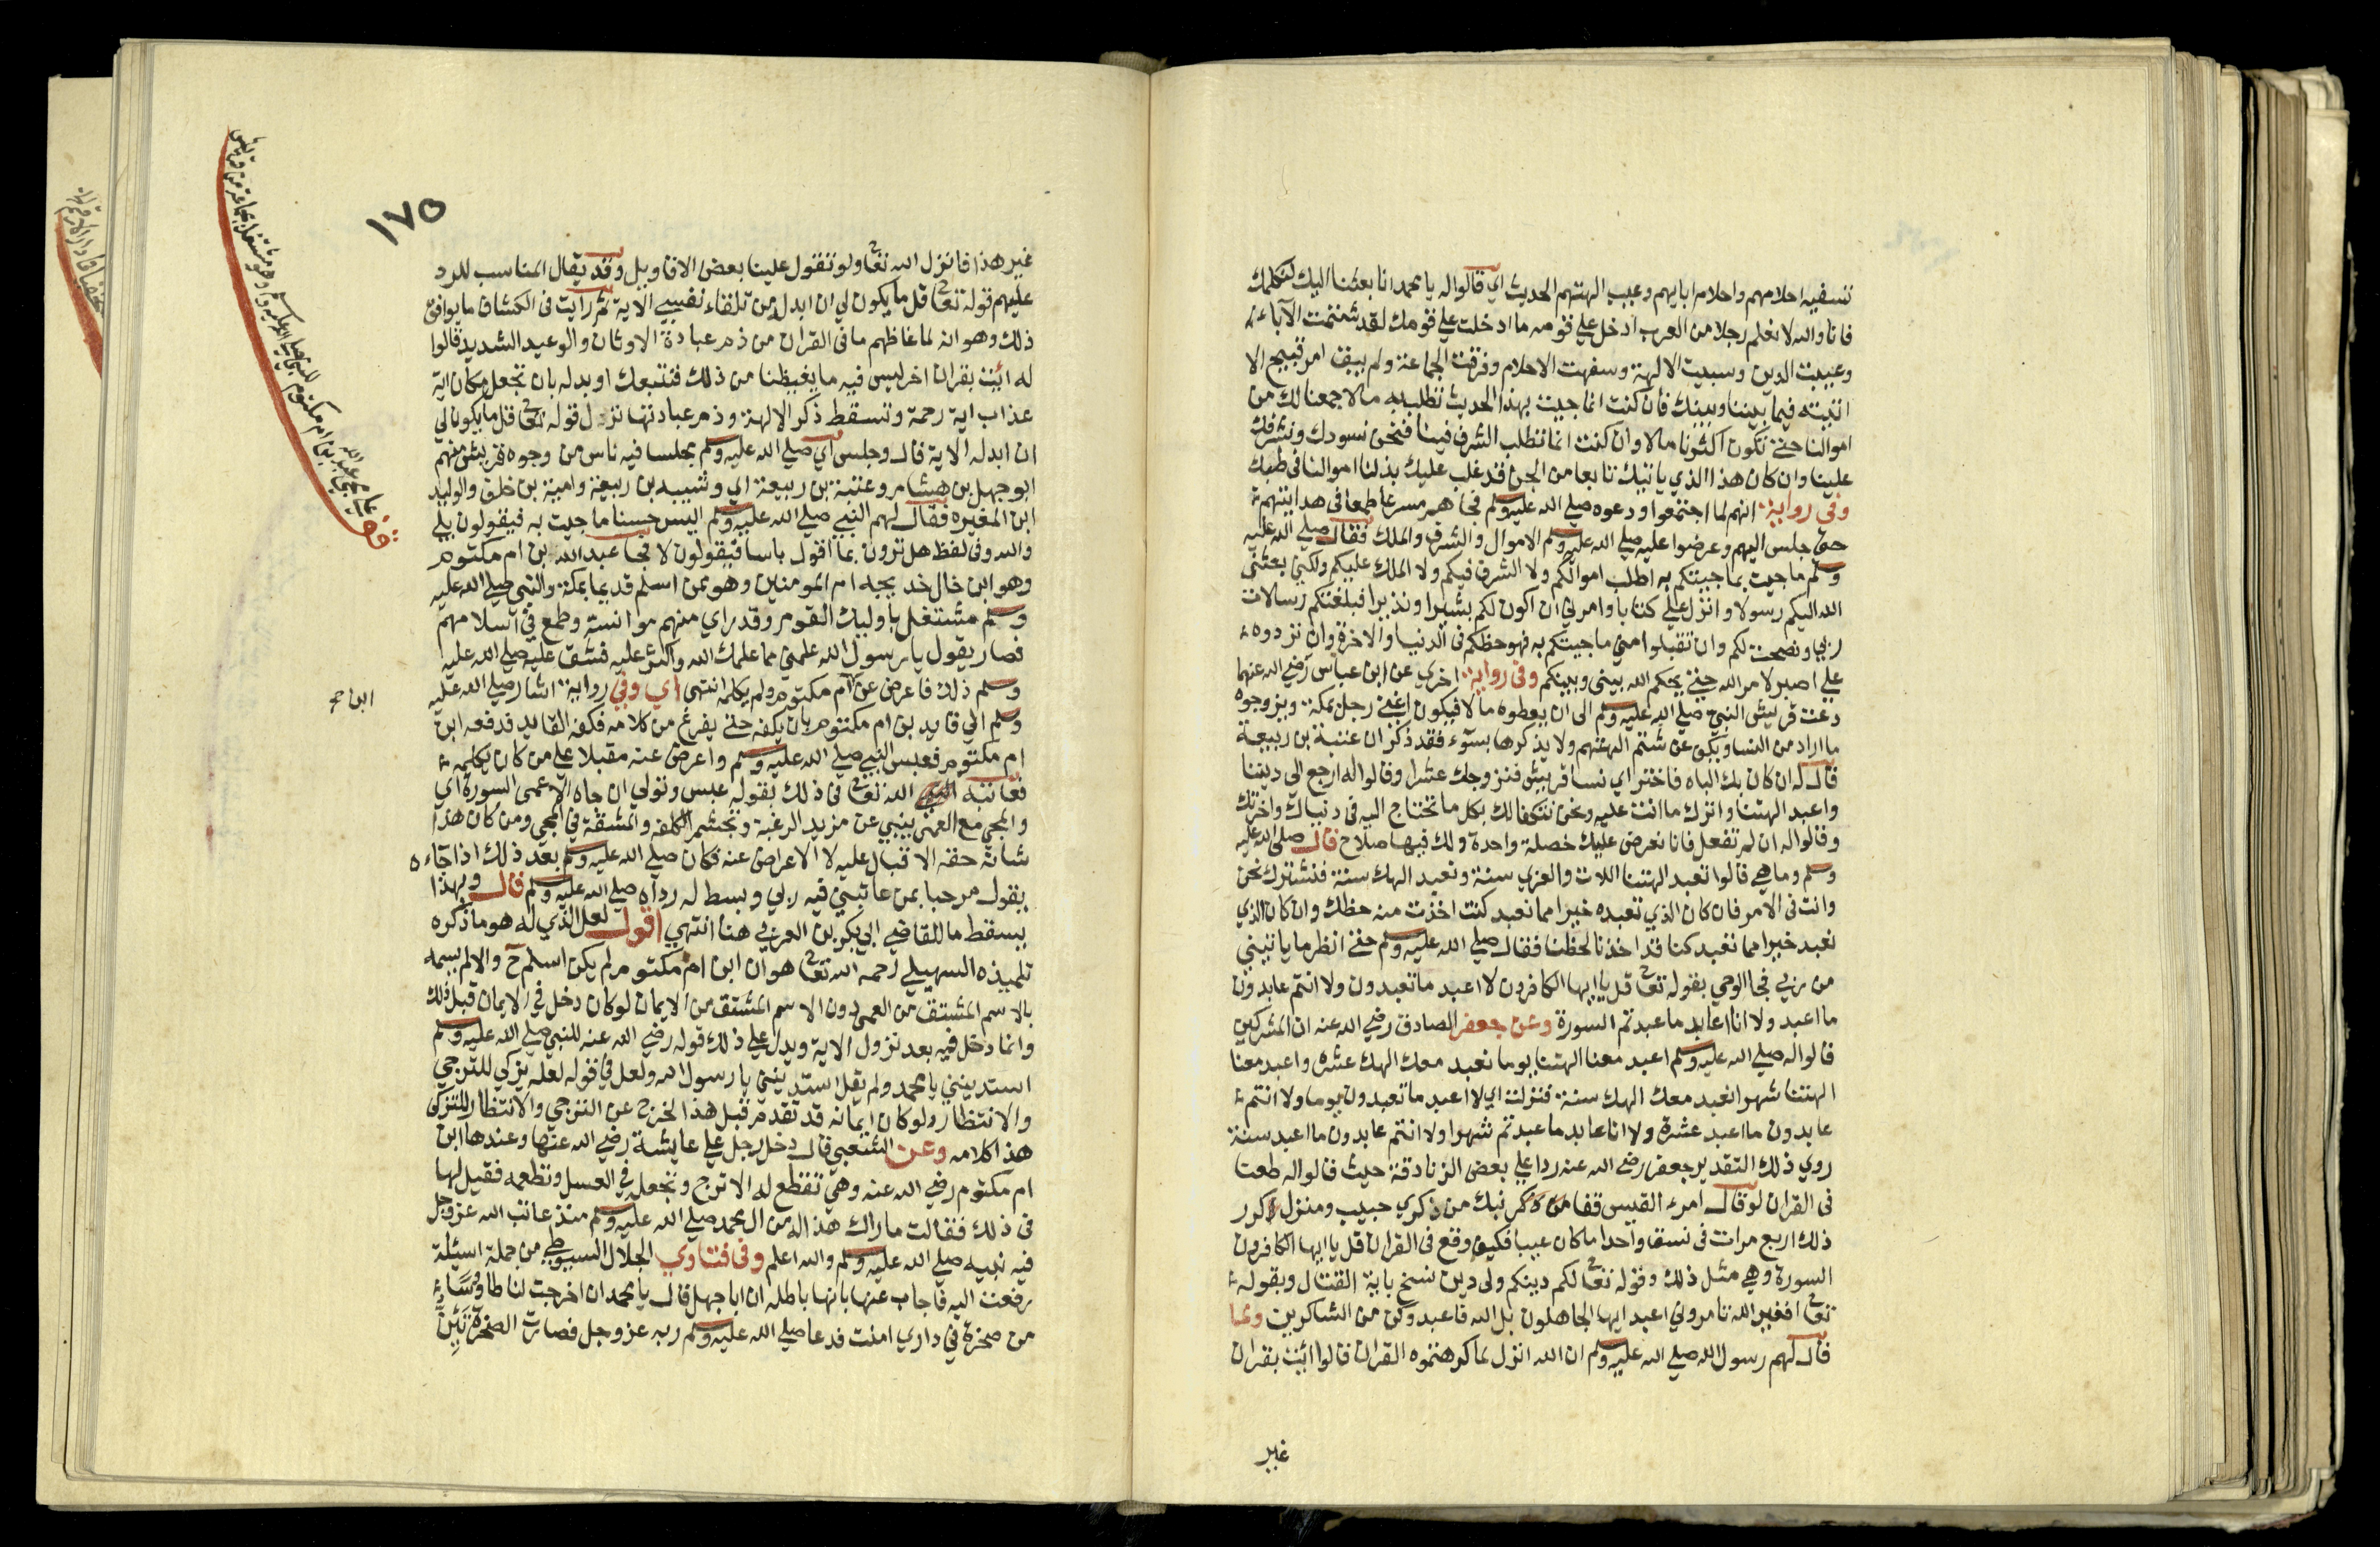 تسفيه احلامهم واحلام ابايهم وعيب الهتهم الحديث اي قالوا له يا محمد انا بعثنا اليك لنكلمك
فانا والله لا نعلم رجلا من العرب ادخل علي قومه ما ادخلت علي قومك لقد شتمت الآباء
وعيبت الدين وسبيت الالهة وسفهت الاحلام وفرقت الجماعة ولم يبق امر قبيح الا
اتيته فيما بيننا وبينك فان كنت انما جيت بهذا الحديث تطلب به مالا جمعنا لك من
اموالنا حتي تكون اكثرنا مالا وان كنت انما تطلب الشرف فينا فنحن نسودك ونشرفك
علينا وان كان هذا الذي ياتيك تابعا من الجن قد غلب عليك بذلنا اموالنا في طبك
وفي رواية انهم لما اجتمعوا ودعوه صلي الله عليه وسلم فجاهم مسرعا طمعا في هدايتهم
حتي جلس اليهم وعرضوا عليه صلي الله عليه وسلم الاموال والشرف والملك فقال صلي الله عليه
وسلم ما جيت بما جيتكم به اطلب اموالكم ولا الشرف فيكم ولا الملك عليكم ولكن بعثني
الله اليكم رسولا وانزل علي كتابا وامرني ان اكون لكم بشيرا ونذيرا فبلغتكم رسالات
ربي ونصحت لكم وان تقبلوا مني ما جيتكم به فهو حظكم في الدنيا والاخرة وان تردوه
علي اصبر لامر الله حتي يحكم الله بيني وبينكم وفي رواية اخري عن ابن عباس رضي الله عنهما
دعت قريش النبي صلي الله عليه وسلم الي ان يعطوه مالا فيكون اغني رجل بمكة ويزوجوه
ما اراد من النسا ويكف عن شتم الهتهم ولا يذكرها بسوء فقد ذكر ان عتبة بن ربيعة
قال له ان كان بك الباه فاختر اي نسا قريش فنزوجك عشرا وقالوا له ارجع الي ديننا
واعبد الهتنا واترك ما انت عليه ونحن نتكفل لك بكل ما تحتاج اليه في دنياك واخرتك
وقالوا له ان لم تفعل فانا نعرض عليك خصلة واحدة ولك فيها صلاح قال صلي الله عليه
وسلم وما هي قالوا تعبد الهتنا اللات والعزي سنة ونعبد الهك سنة فنشترك نحن
وانت في الامر فان كان الذي تعبده خيرا مما نعبد كنت اخذت منه حظك وان كان الذي
نعبد خيرا مما تعبد كنا قد اخذنا لحظنا فقال صلي الله عليه وسلم حتي انظر ما ياتيني
من ربي فجا الوحي بقوله تعا قل يا ايها الكافرون لا اعبد ما تعبدون ولا انتم عابدون
ما اعبد ولا انا عابد ما عبدتم السورة وعن جعفر الصادق رضي الله عنه ان المشركين
قالوا له صلي الله عليه وسلم اعبد معنا الهتنا يوما نعبد معك الهك عشرة واعبد معنا
الهتنا شهرا نعبد معك الهك سنة فنزلت اي لا اعبد ما تعبدون يوما ولا انتم
عابدون ما اعبد عشرة ولا انا عابد ما عبدتم شهرا ولا انتم عابدون ما اعبد سنة
روي ذلك التقدير جعفر رضي الله عنه ردا علي بعض الزنادقة حيث قالوا له طعنا
في القران لو قال امرء القيس قفا نبك من ذكري حبيب ومنزل وكرر
ذلك اربع مرات في نسق واحد اما كان عيبا فكيف وقع في القران قل يا ايها الكافرون
السورة وهي مثل ذلك وقوله تعا لكم دينكم ولي دين نسخ باية القتال وبقوله
تعا افغير الله تامروني اعبد ايها الجاهلون بل الله فاعبد وكن من الشاكرين ولما
قال لهم رسول الله صلي الله عليه وسلم ان الله انزل لما كرهتموه القران قالوا ائت بقران
غير
١٧٥
غير هذا فانزل الله تعا ولو تقول علينا بعض الاقاويل وقد يقال المناسب للرد
عليهم قوله تعا قل ما يكون لي ان ابدله من تلقاء نفسي الاية ثم رايت في الكشاف ما يوافق
ذلك وهو انه لما غاظهم ما في القران من ذم عبادة الاوثان والوعيد الشديد قالوا
له ائت بقران اخر ليس فيه ما يغيظنا من ذلك فنتبعك او بدله بان تجعل مكان اية
عذاب اية رحمة وتسقط ذكر الالهة وذم عبادتها نزل قوله تعا قل ما يكون لي
ان ابدله الاية قال وجلس اي صلي الله عليه وسلم مجلسا فيه ناس من وجوه قريش منهم
ابو جهل بن هشام وعتبة بن ربيعة اي وشيبه بن ربيعة وامية بن خلف والوليد
ابن المغيره فقال لهم النبي صلي الله عليه وسلم اليس حسنا ما جيت به فيقولون بلي
والله وفي لفظ هل ترون بما اقول باسا فيقولون لا فجا عبد الله بن ام مكتوم
وهو ابن خال خديجه ام المومنين وهو ممن اسلم قديما بمكة والنبي صلي الله عليه
وسلم مشتغل باوليك القوم وقد راي منهم موانسة وطمع في اسلامهم
فصار يقول يا رسول الله علمني مما علمك الله واكثر عليه فشق عليه صلي الله عليه
وسلم ذلك فاعرض عن ام مكتوم ولم يكلمه انتهي اي وفي رواية اشار صلي الله عليه
ابن صح
وسلم الي قايد بن ام مكتوم بان يكفه حتي يفرغ من كلامه فكفه القايد فدفعه ابن
ام مكتوم فعبس النبي صلي الله عليه وسلم واعرض عنه مقبلا علي من كان يكلمه
فعاتبه الله تعا في ذلك بقوله عبس وتولي ان جاه الاعمي السورة اي
والمجي مع العمي ينبي عن مزيد الرغبة وتجشم الكلفه والمشقة في المجي ومن كان هذا
شانه حقه الاقبال عليه لا الاعراض عنه فكان صلي الله عليه وسلم بعد ذلك اذا جاءه
يقول مرحبا بمن عاتبني فيه ربي وبسط له رداه صلي الله عليه وسلم قال وبهذا
يسقط ما للقاضي ابي بكر بن العربي هنا انتهي اقول لعل الذي له هو ما ذكره
تلميذه السهيلي رحمه الله تعا هو ان ابن ام مكتوم لم يكن اسلم ح والا لم يسمه
بالاسم المشتق من العمي دون الاسم المشتق من الايمان لو كان دخل في الايمان قبل ذلك
وانما دخل فيه بعد نزول الاية ويدل علي ذلك قوله رضي الله عنه للنبي صلي الله عليه وسلم
استدينني يا محمد ولم يقل استدينني يا رسول الله ولعل في قوله لعله يزكي للترجي
والانتظار ولو كان ايمانه قد تقدم قبل هذا لخرج عن الترجي والانتظار للتزكي
هذا كلامه وعن الشعبي قال دخل رجل علي عايشة رضي الله عنها وعندها ابن
ام مكتوم رضي الله عنه وهي تقطع له الاترج وتجعله في العسل وتطعمه فقيل لها
في ذلك فقالت ما زال هذا له من ال محمد صلي الله عليه وسلم منذ عاتب الله عز وجل
فيه نبيه صلي الله عليه وسلم والله اعلم وفي فتاوي الجلال السيوطي من جملة اسيلة
رفعت اليه فاجاب عنها بانها باطلة ان ابا جهل قال يا محمد ان اخرجت لنا طاوسا
من صخرة في داري امنت فدعا صلي الله عليه وسلم ربه عز وجل فصارت الصخرة تئن